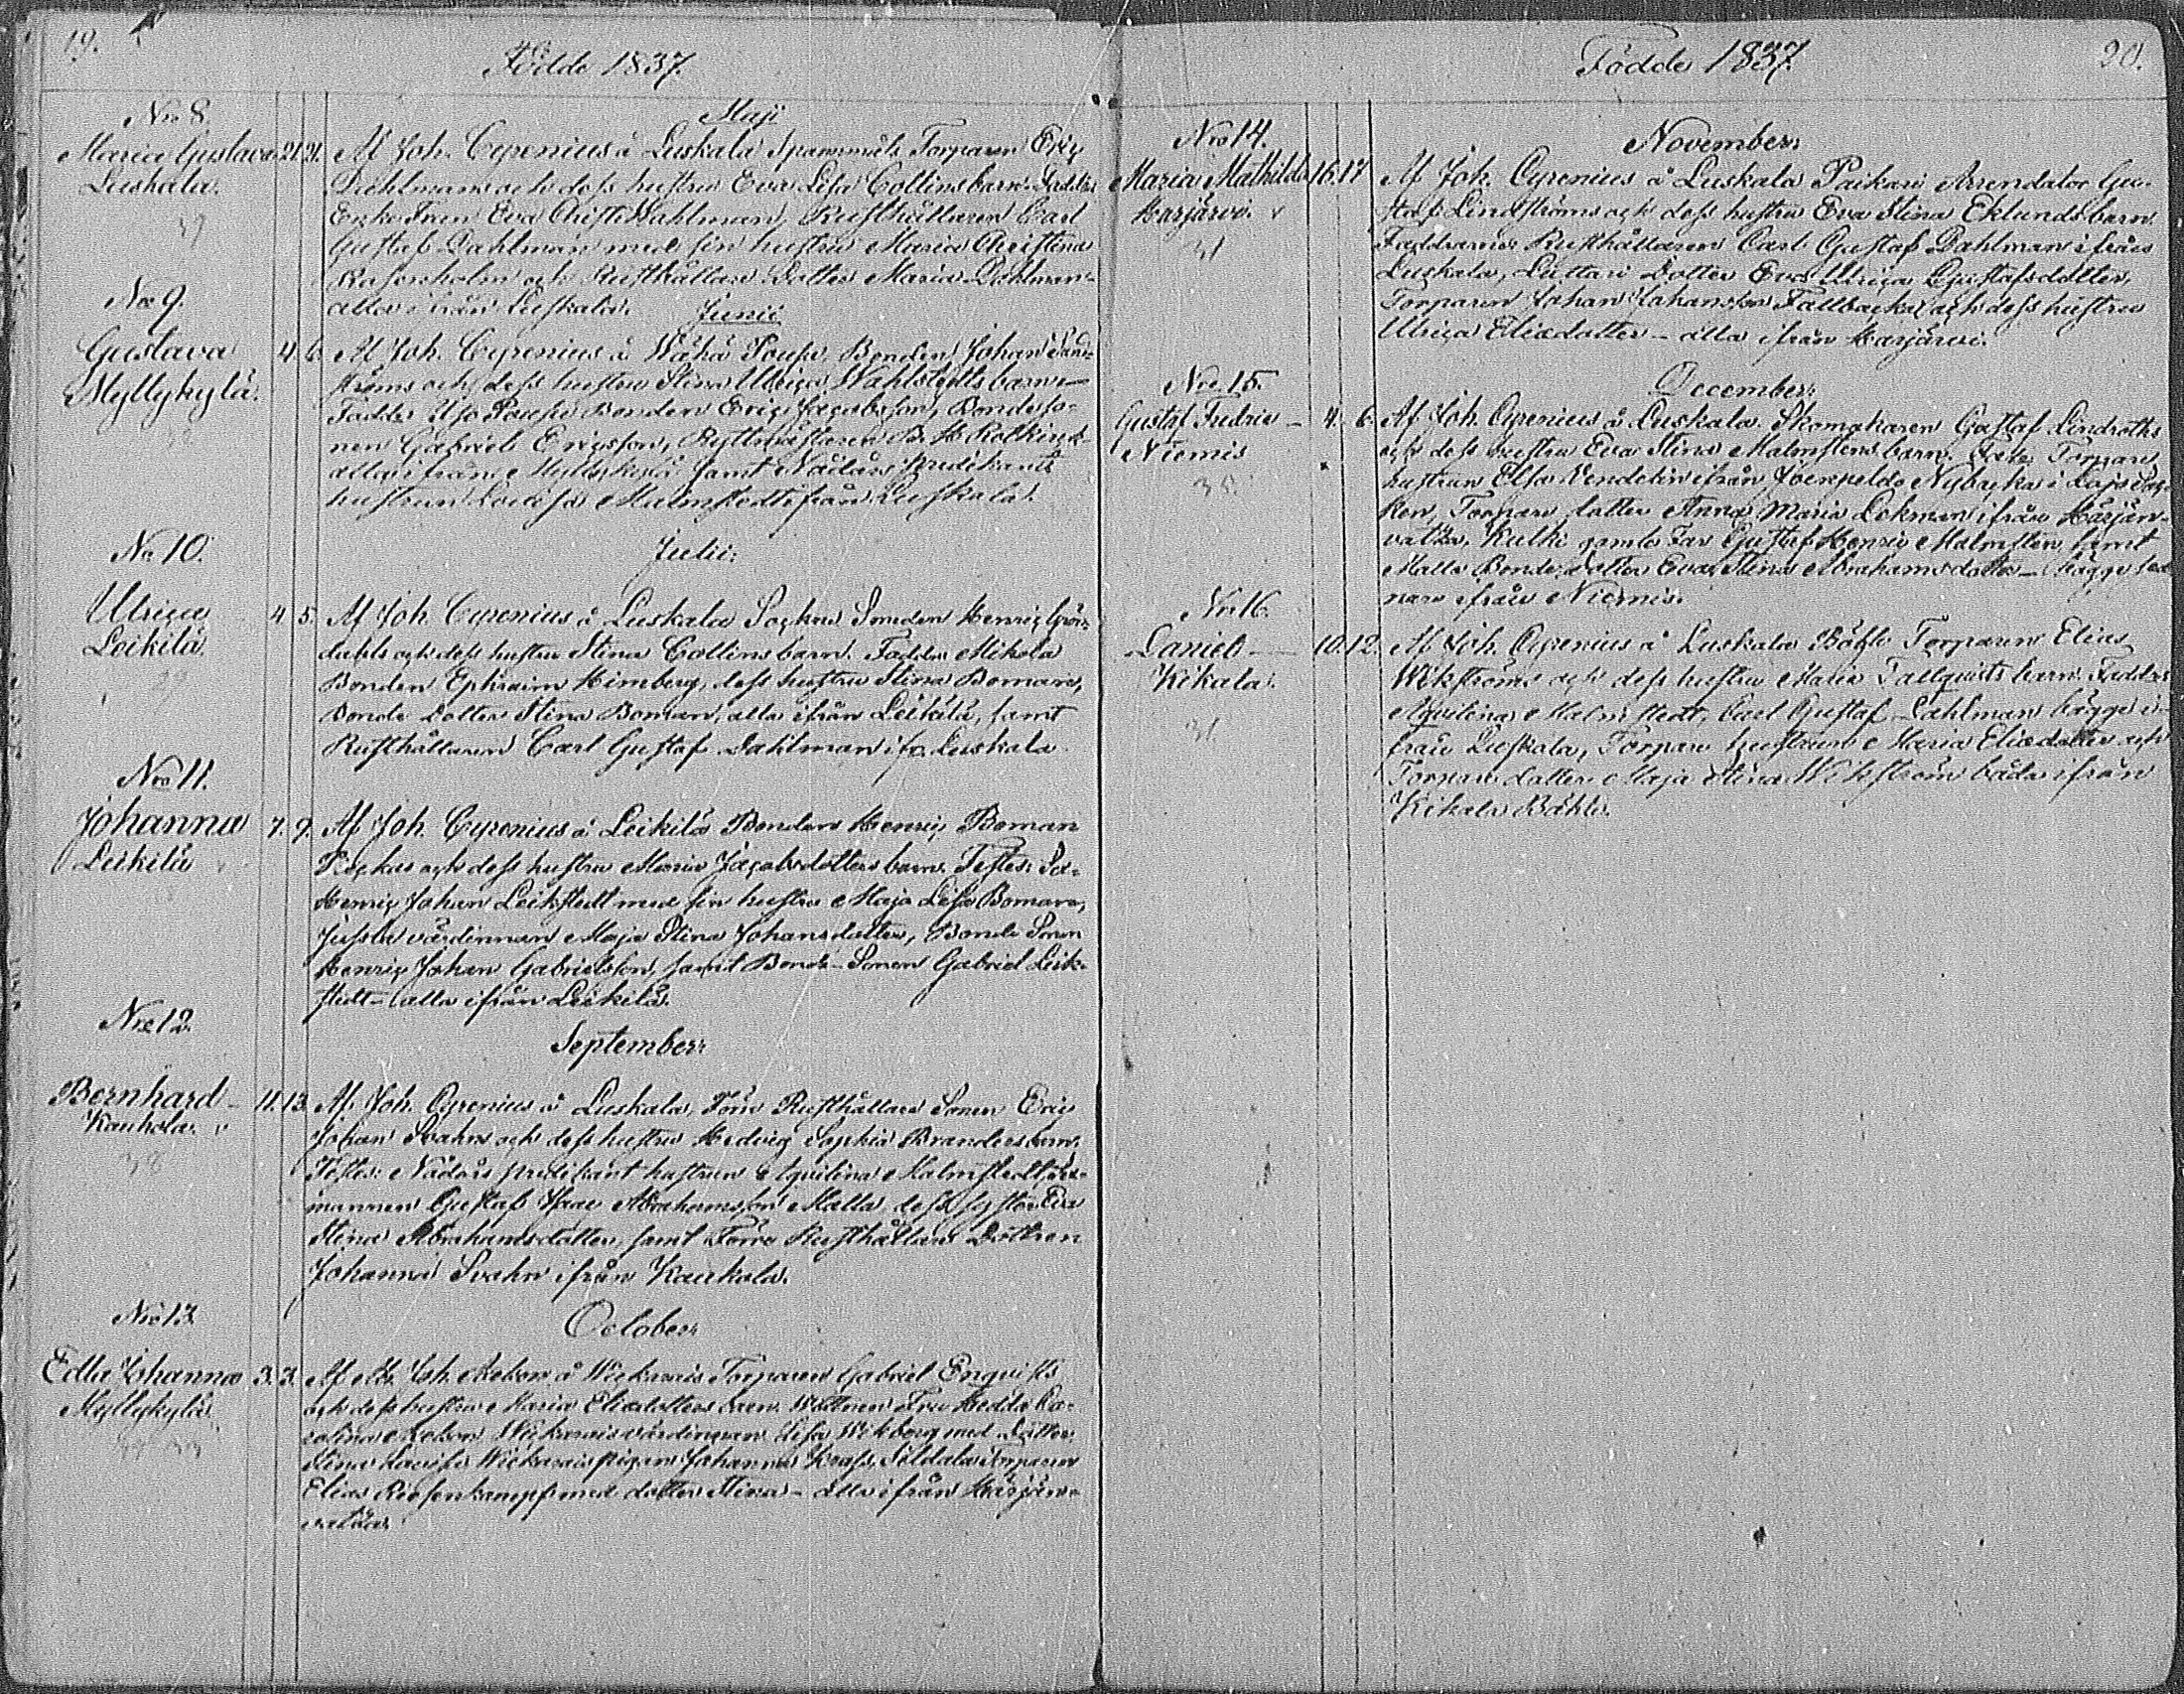 19.
Födde 1837.
Maji
Nro 8.
Maria Gustava 21. 21. Af Joh. Cyrenius å Luskala Spannmåls Torparen Eric
Luskala. Dahlmans och dess hustru Eva Lisa Collins barn. Faddrar
Enke Frun Eva Christ. Dahlman, Rusthållaren Carl
37
Gustaf Dahlman med sin hustru Maria Christina
och Rusthållare Dotter Maria Dahlman
alla ifrån Luskala.
Junii
No 9.
Gustava 4. 6. Af Joh. Cyrenius å Wähä Poupo, Bonden Johan Sand-
Myllykylä. ströms och dess hustru Stina Ulrica Wahlstedts barn
Fadder Bonden Eric Jacobsson, Bondeso-
nen Gabriel Ericsson, Rotkirch
alla ifrån Myllykylä samt Nådårs Predikants
hustrun Lovisa Malmstedt ifrån Luskala.
No 10.
Julii:
Ulrica 4. 5. Af Joh. Cyrenius å Luskala Sockne Smeden Henric Grön-
Leikilä dahls och dess hustru Stina Collins barn. Faddr. Mikola
29
Bonden Ephraim Himberg, dess hustru Stina Boman,
Bonde Dotter Stina Boman, alla ifrån Leikilä, samt
Rusthållaren Carl Gustaf Dahlman ifr. Luskala
Nro 11.
Johanna 7. 9. Af Joh. Cyrenius å Leikilä Bonden Henric Boman
Leikilä och dess hustru Maria Jacobsdotters barn. Testes:
Henric Johan Leikstedt med sin hustru Maja Lisa Boman,
Jussila värdinnan Maja Stina Johansdotter, Bonde Sonen
Henric Johan Gabrielsson, samt Bonde-Sonen Gabriel Leik-
stedt – alla ifrån Leikilä.
Nro 12.
September:
Bernhard – 11. 13. Af Joh. Cyrenius å Luskala, Töni Rusthållare Sonen Eric
Kaukola. v Johan Svahns och dess hustru Hedvig Sophia Branders barn.
38
Testes: Nådårs predikant hustrun Aqvilina Malmstedt,
mannen Gustaf Isaac Abrahamsson Malla, dess syster Eva
Stina Abrahamsdotter, samt Rusthållare Dottren
Johanna Svahn ifrån Kaukola.
Nro 13.
October:
Edla Johanna 3. 3. Af Joh. å Wickarais Torparen Gabriel Enqvists
Myllykylä och dess hustru Maria Eliædotters barn. Fru Hedda Ca-
rolina Wickarais värdinnan Lisa Wikberg med Dotter
Stina Lovisa, Wickarais pigan Johanna Krass, Torparen
Elias Riesenkampf med dotter Stina – alla ifrån Härjän-
vatsa.
20.
Födde 1837.
Nro 14.
November:
Maria Mathilda 16. 17. Af Joh. Cyrenius å Luskala Paikari Arrendator Gu-
Harjärvi. v staf Lindströms och dess hustru Eva Stina Eklunds barn.
31
Faddrarne: Rusthållaren Carl Gustaf Dahlman ifrån
Luskala, Luttari Dotter Eva Ulrica Gustafsdotter,
Torparen Johan Johansson Tallbacka och dess hustru
Ulrica Eliædotter – alla ifrån Harjärvi.
Nro. 15.
December:
Gustaf Fredric – 4. 6. Af Joh. Cyrenius å Luskala Skomakaren Gustaf Lindroths
Niemis och dess hustru Eva Stina Malmstens barn. Torpare
hustrun Elsa Vendelin ifrån Joenpeldo Nybacka i Lojo Soc-
ken, Torpare dotter Anna Maria Lokman ifrån Härjän-
vatsa, Kulhi gamle Far Gustaf Henric Malmsten samt
Malla Bonde dotter Eva Stina Abrahamsdotter – bägge sed-
nare ifrån Niemis.
Nro 16.
Daniel – 10. 12. Af Joh. Cyrenius å Luskala Böhle Torparen Elias
Kikala. Wikströms och dess hustru Maria Tallqvists barn. Faddrar
31
Aqvilina Malmstedt, Carl Gustaf Dahlman bägge i-
från Luskala, Torpare hustrun Maria Eliædotter och
Torpare dotter Maja Stina Wikström båda ifrån
Kikala Böhle.